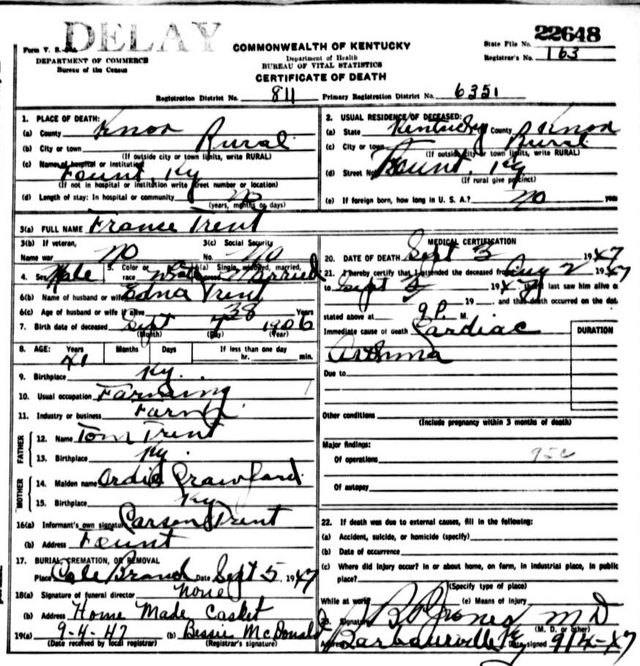 DELAY
22648
Form V. S.
DEPARTMENT OF COMMERCE
Bureau of the Census
COMMONWEALTH OF KENTUCKY
Department of Health
BUREAU OF VITAL STATISTICS
CERTIFICATE OF DEATH
State File No.
Registrar's No. 163
Registration District No. 811 Primary Registration District No. 6351
1. PLACE OF DEATH:
(a) County Knox
(b) City or town Rural
(If outside city or town limits, write RURAL)
(c) Name of hospital or institution
Fount Ky
(If not in hospital or institution write street number or location)
(d) Length of stay: In hospital or community No
(years, months or days)
2. USUAL RESIDENCE OF DECEASED:
(a) State Kentucky County Knox
(c) City or town Rural
(If outside city or town limits, write RURAL)
(d) Street No. Fount, Ky
(If rural give precinct)
(e) If foreign born, how long in U. S. A.? No years
3(a) FULL NAME France Trent
3(b) If veteran,
Name war NO
3(c) Social Security
No. NO
4. Sex Male 5. Color or race White 6(a) Single, widowed, married, Married
6(b) Name of husband or wife Edna Trent
6(c) Age of husband or wife if alive 38
7. Birth date of deceased Sept 7 1906
(Month) (Day) (Year)
8. AGE: Years Months Days If less than one day
41 hr. min.
9. Birthplace Ky.
10. Usual occupation Farming
11. Industry or business Farm
FATHER
12. Name Tom Trent
13. Birthplace Ky.
MOTHER
14. Maiden name Ordie Crawford
15. Birthplace Ky
16(a) Informant's own signature Carson Trent
(b) Address Fount
17. BURIAL, CREMATION, OR REMOVAL
Place Cole Branch Date Sept 5, 1947
18(a) Signature of funeral director none
(b) Address Home Made Casket
19(a) 9-4-47 (b) Bessie McDonald
(Date received by local registrar) (Registrar's signature)
MEDICAL CERTIFICATION
20. DATE OF DEATH Sept 3 1947
21. I hereby certify that I attended the deceased from Aug 2 1947
Sept 3 1947 that I last saw him alive on
19 and that death occurred on the date
stated above at 9 P. M.
Immediate cause of death Cardiac
Asthma
DURATION
Due to
Other conditions
(Include pregnancy within 3 months of death)
Major findings:
Of operations 95c
Of autopsy
22. If death was due to external causes, fill in the following:
(a) Accident, suicide, or homicide (specify)
(b) Date of occurrence
(c) Where did injury occur? In or about home, on farm, in industrial place, in public
place?
(Specify type of place)
While at work? (e) Means of injury
B P Jones M D
(M. D. or other)
Barbourville Ky Date signed 9/4-47